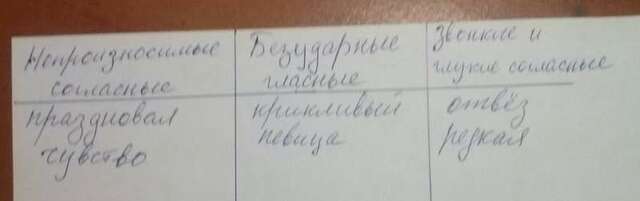 Непроизносимые
согласные
Безударные
гласные
Звонкие и
глухие согласные
праздновал
чувство
крикливый
певица
отвёз
резкая